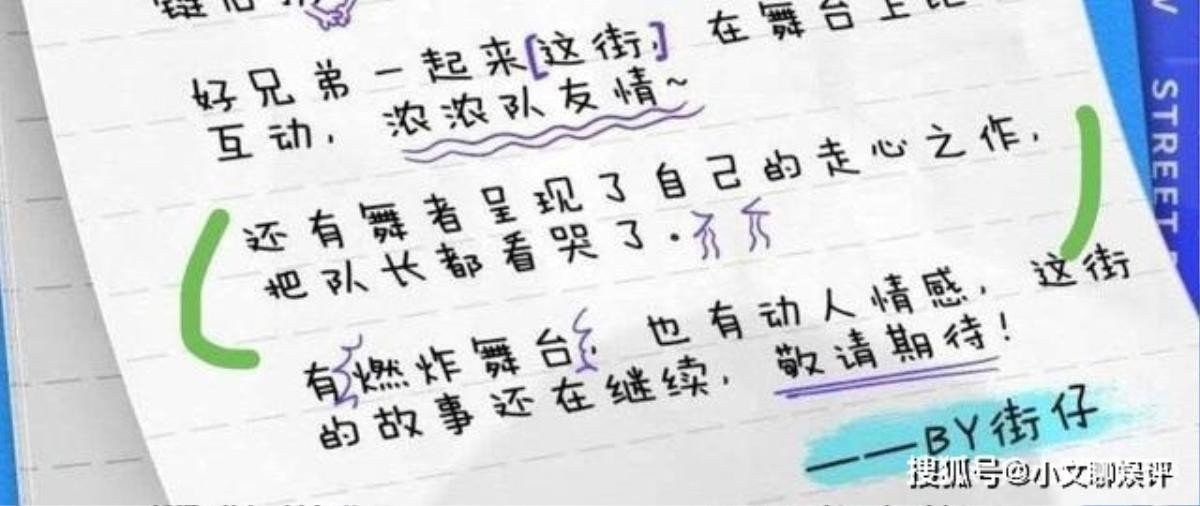 好兄弟一起来[这街]在舞台上比
互动，浓浓队友情~
还有舞者呈现了自己的走心之作，
把队长都看哭了.
有燃炸舞台，也有动人情感，这街
的故事还在继续，敬请期待！
——BY街仔
STREET
搜狐号@小文聊娱评